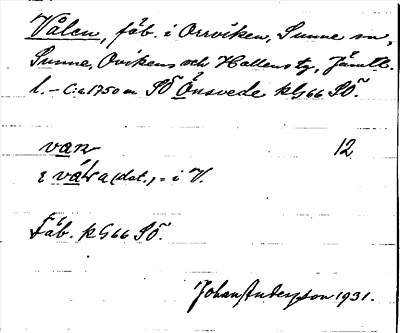 Vålen, fäb. i Orrviken, Sunne sn,
Sunne, Ovikens och Hallens tg, Jämtl.
l. – C:a 1750 m SÖ Önsvede kG66 SÖ.
van 12
i våla (dat.) = i V.
Fäb. kG66 SÖ.
Johan Anderzson 1931.